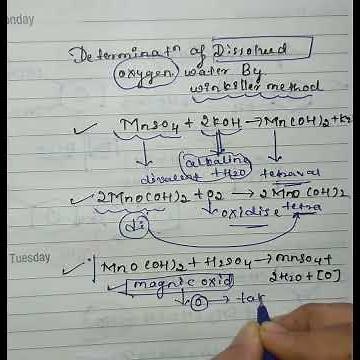 onday
Determinatn of Dissolved
oxygen water By
winkller method
✓ MnSO4 + 2KOH → Mn(OH)2 + K2
alkaline
divalent + H2O tetraval
✓ 2MnO(OH)2 + O2 → 2MnO(OH)2
oxidise tetra
di
Tuesday
✓ MnO(OH)2 + H2SO4 → MnSO4 +
2H2O + [O]
magnic oxid
O → tak